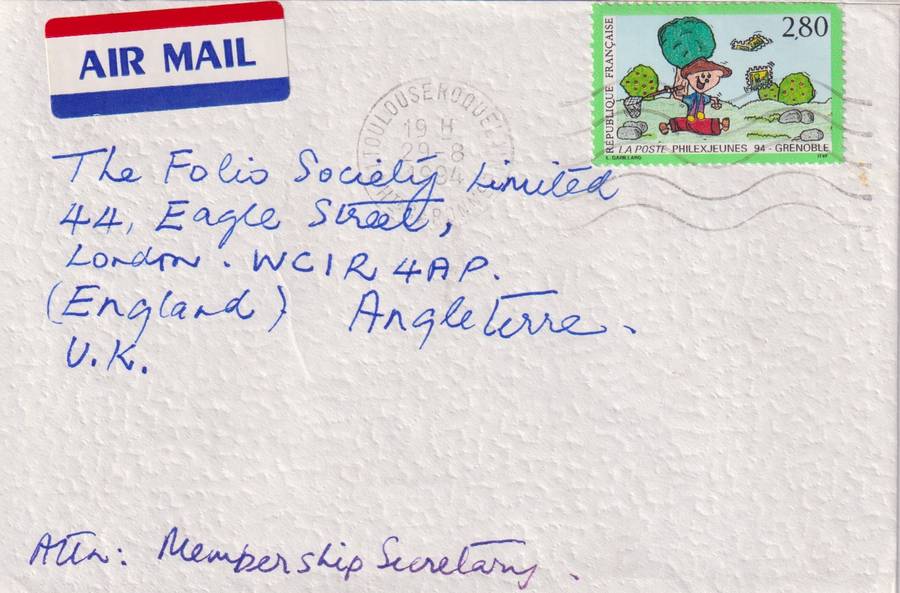 AIR MAIL
2,80
RÉPUBLIQUE FRANÇAISE
LA POSTE PHILEXJEUNES 94 - GRENOBLE
ITVF
TOULOUSE ROQUE
19 H
29-8
1994
The Folio Society Limited
44, Eagle Street,
London. WC1R 4AP.
(England) Angleterre.
U.K.
Attn: Membership Secretary.